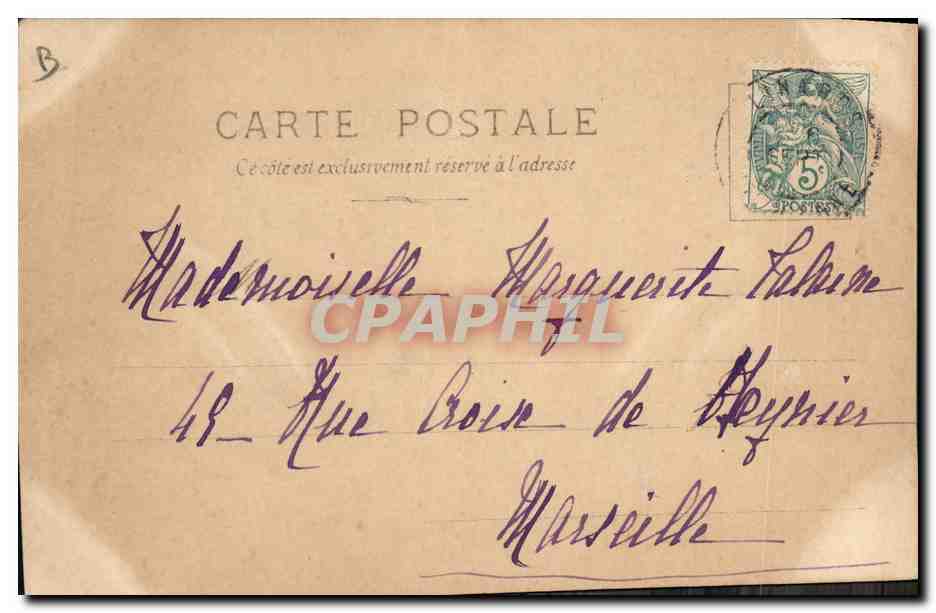 B
CARTE POSTALE
Ce côté est exclusivement réservé à l'adresse
5c
POSTES
Mademoiselle Marguerite
CPAPHIL
Rue Croix de Reynier
Marseille